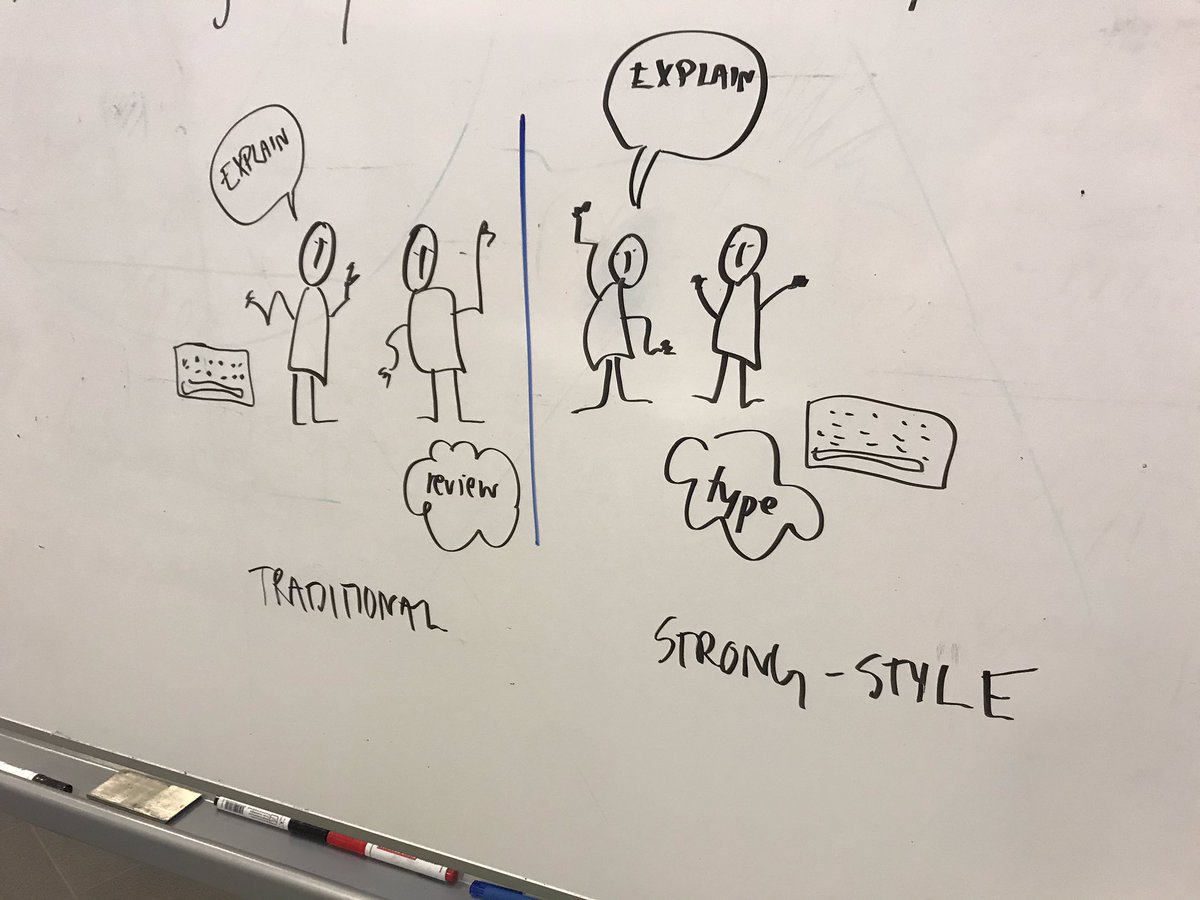 EXPLAIN
review
TRADITIONAL
EXPLAIN
type
STRONG-STYLE